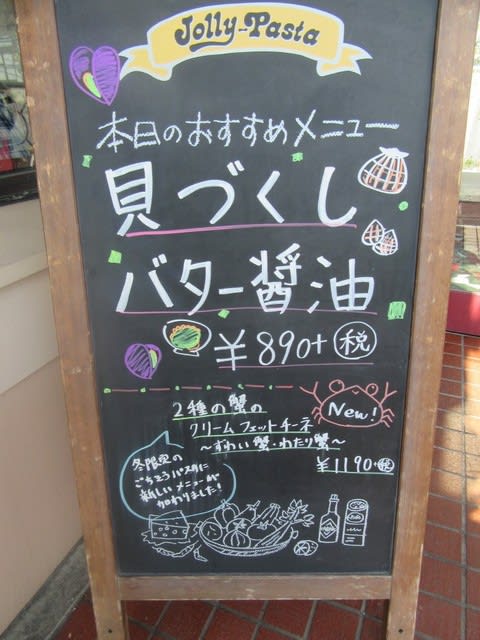 Jolly-Pasta
本日のおすすめメニュー
貝づくし
バター醤油
¥890+税
New!
2種の蟹の
クリームフェットチーネ
～ずわい蟹・わたり蟹～
¥1190+税
冬限定の
ごちそうパスタに
新しいメニューが
加わりました!